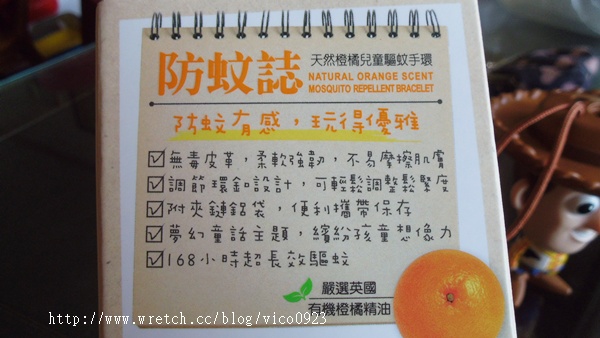 防蚊誌
天然橙橘兒童驅蚊手環
NATURAL ORANGE SCENT
MOSQUITO REPELLENT BRACELET
防蚊有感，玩得優雅
無毒皮革，柔軟強韌，不易摩擦肌膚
調節環釦設計，可輕鬆調整鬆緊度
附夾鏈鋁袋，便利攜帶保存
夢幻童話主題，繽紛孩童想像力
168小時超長效驅蚊
嚴選英國
有機橙橘精油
http://www.wretch.cc/blog/vico0923